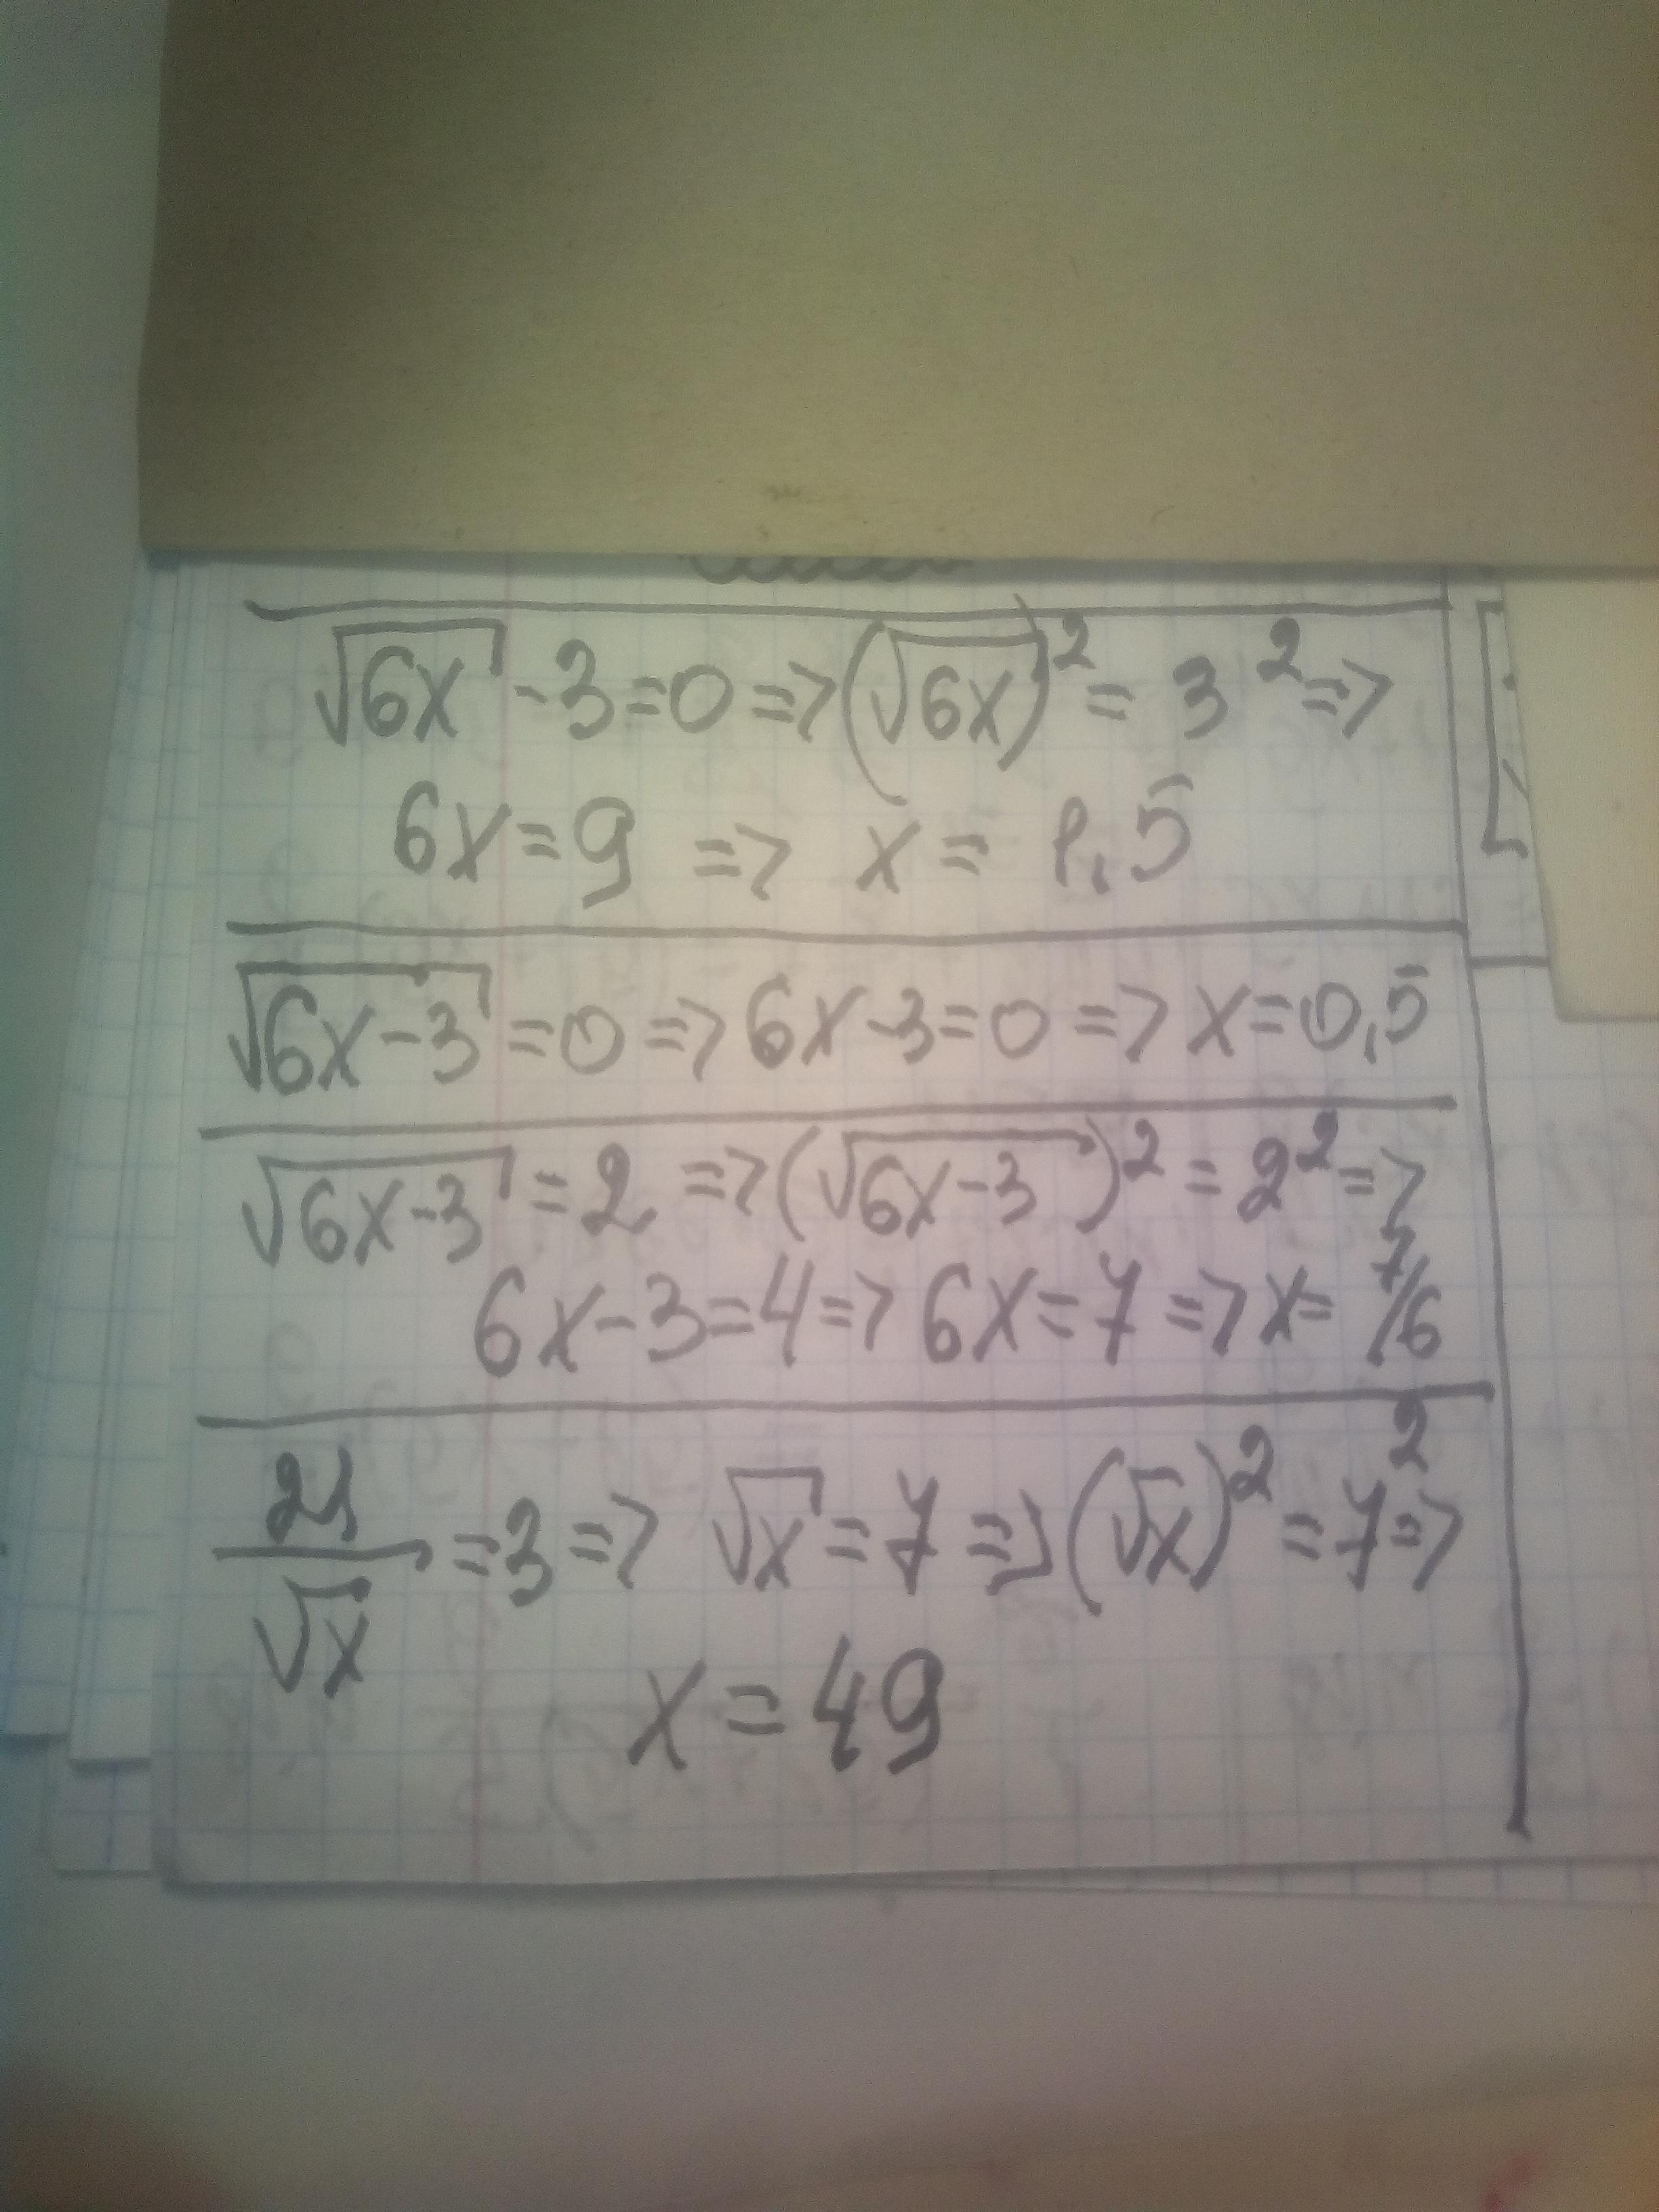 √6x - 3 = 0 => (√6x)² = 3² =>
6x = 9 => x = 1,5
√6x-3 = 0 => 6x-3=0 => x=0,5
√6x-3 = 2 => (√6x-3)² = 2² =>
6x-3=4 => 6x=7 => x= 7/6
21/√x = 3 => √x = 7 => (√x)² = 7² =>
x = 49